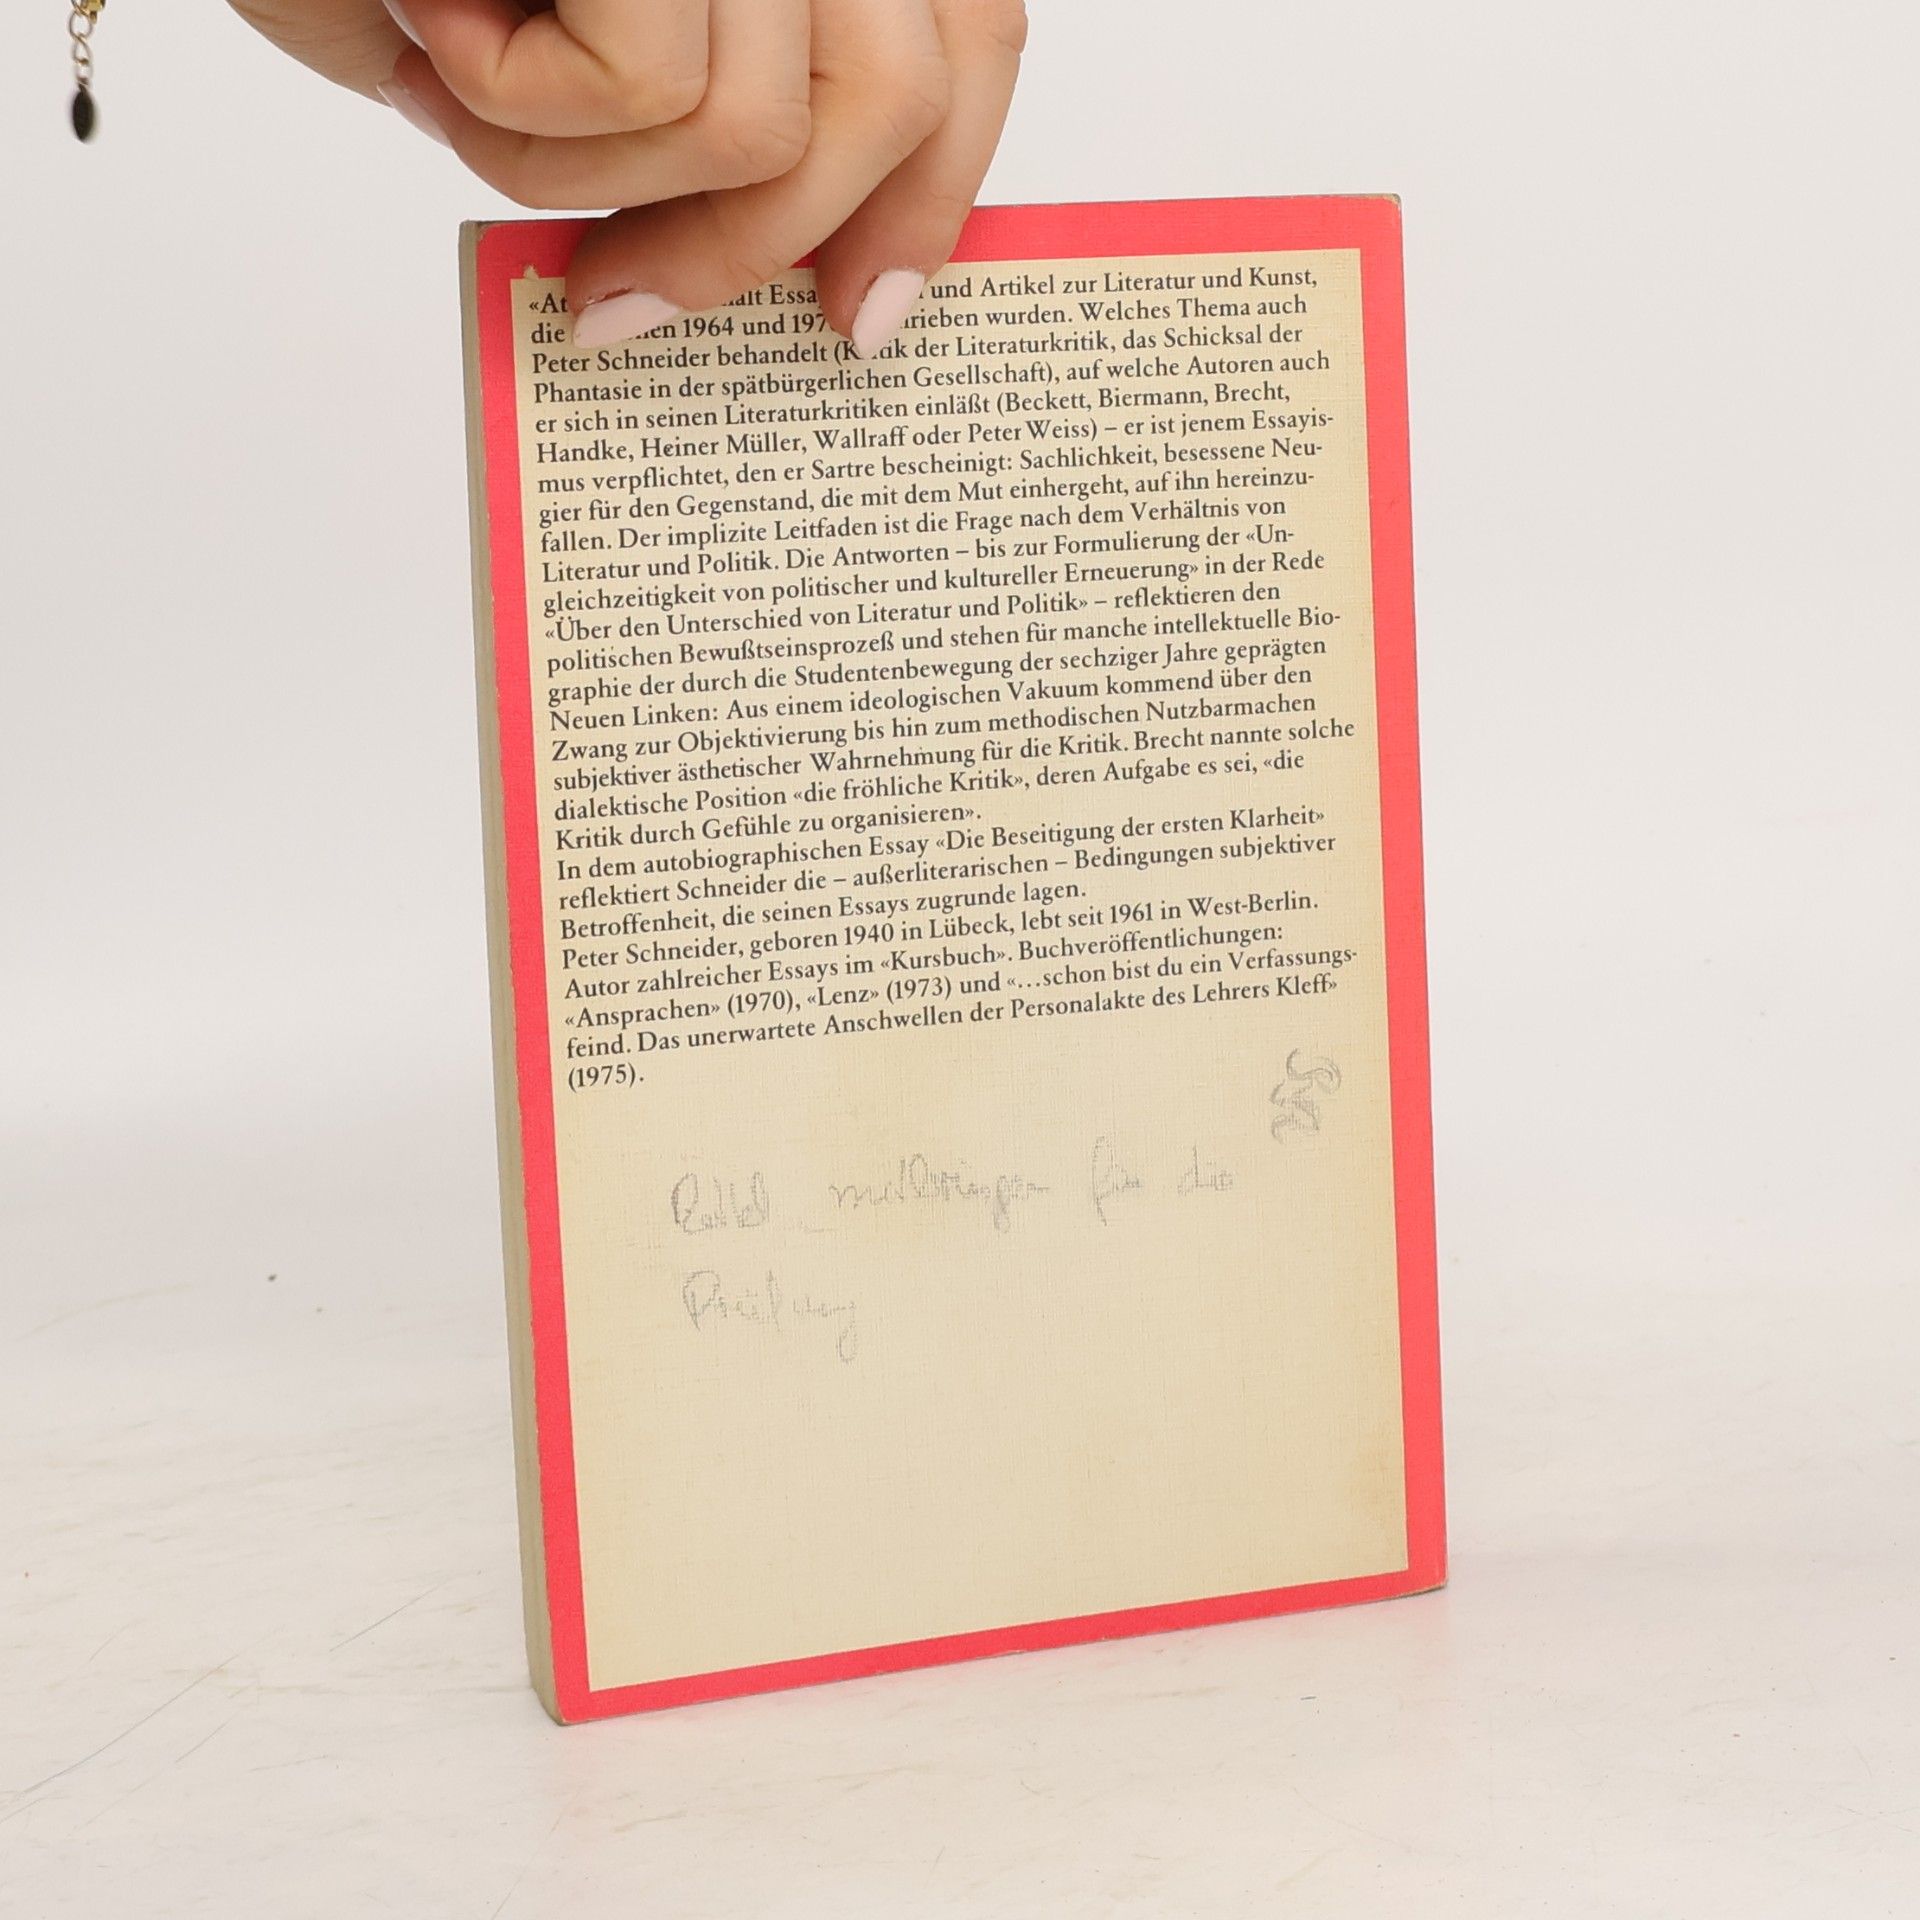 «At alt Essa und Artikel zur Literatur und Kunst,
die en 1964 und 197 rieben wurden. Welches Thema auch
Peter Schneider behandelt (K ik der Literaturkritik, das Schicksal der
Phantasie in der spätbürgerlichen Gesellschaft), auf welche Autoren auch
er sich in seinen Literaturkritiken einläßt (Beckett, Biermann, Brecht,
Handke, Heiner Müller, Wallraff oder Peter Weiss) – er ist jenem Essayis-
mus verpflichtet, den er Sartre bescheinigt: Sachlichkeit, besessene Neu-
gier für den Gegenstand, die mit dem Mut einhergeht, auf ihn hereinzu-
fallen. Der implizite Leitfaden ist die Frage nach dem Verhältnis von
Literatur und Politik. Die Antworten – bis zur Formulierung der «Un-
gleichzeitigkeit von politischer und kultureller Erneuerung» in der Rede
«Über den Unterschied von Literatur und Politik» – reflektieren den
politischen Bewußtseinsprozeß und stehen für manche intellektuelle Bio-
graphie der durch die Studentenbewegung der sechziger Jahre geprägten
Neuen Linken: Aus einem ideologischen Vakuum kommend über den
Zwang zur Objektivierung bis hin zum methodischen Nutzbarmachen
subjektiver ästhetischer Wahrnehmung für die Kritik. Brecht nannte solche
dialektische Position «die fröhliche Kritik», deren Aufgabe es sei, «die
Kritik durch Gefühle zu organisieren».
In dem autobiographischen Essay «Die Beseitigung der ersten Klarheit»
reflektiert Schneider die – außerliterarischen – Bedingungen subjektiver
Betroffenheit, die seinen Essays zugrunde lagen.
Peter Schneider, geboren 1940 in Lübeck, lebt seit 1961 in West-Berlin.
Autor zahlreicher Essays im «Kursbuch». Buchveröffentlichungen:
«Ansprachen» (1970), «Lenz» (1973) und «...schon bist du ein Verfassungs-
feind. Das unerwartete Anschwellen der Personalakte des Lehrers Kleff»
(1975).
mitbringen für die
Prüfung